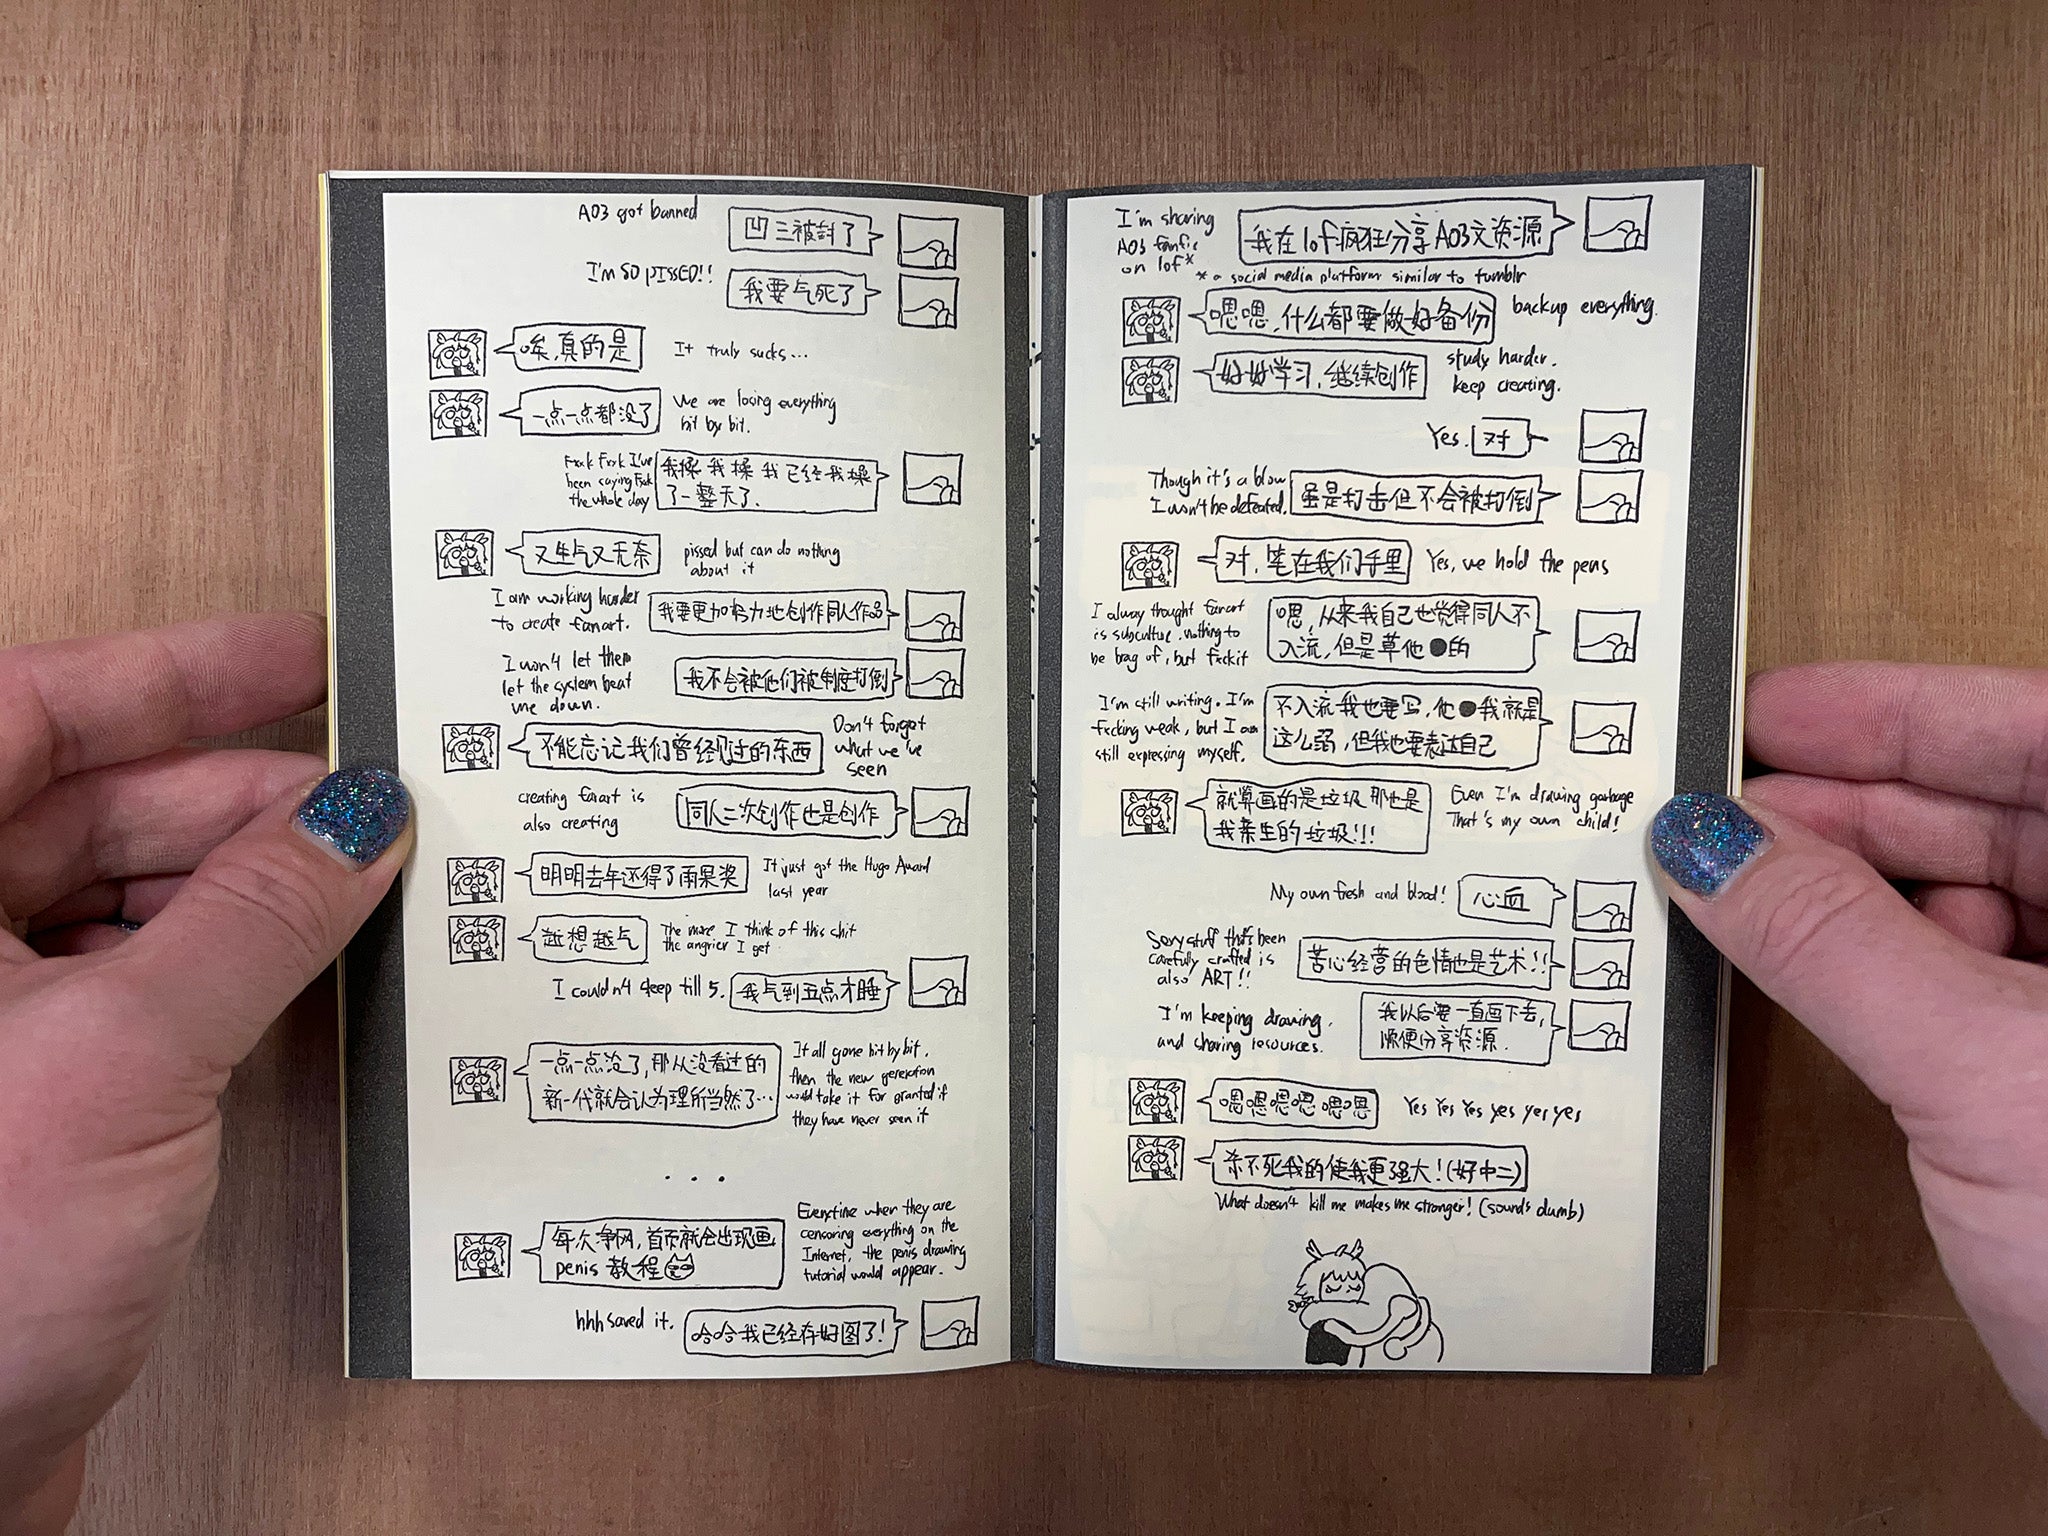 AO3 got banned
凹三被封了
I'm SO pISSED!!
我要气死了
唉,真的是
It truly sucks...
一点一点都没了
We are losing everything
bit by bit.
Fxxk Fxxk I've
been saying Fxxk
the whole day
我操 我操 我已经我操
了一整天了.
又生气又无奈
pissed but can do nothing
about it
I am working harder
to create fanart.
我要更加努力地创作同人作品
I won't let them
let the system beat
me down.
我不会被他们被制度打倒
不能忘记我们曾经见过的东西
Don't forget
what we've
seen
creating fanart is
also creating
同人二次创作也是创作
明明去年还得了雨果奖
It just got the Hugo Award
last year
越想越气
The more I think of this shit
the angrier I get
I couldn't sleep till 5.
我气到五点才睡
一点一点没了,那从没看过的
新一代就会认为理所当然了...
It all gone bit by bit,
then the new generation
would take it for granted if
they have never seen it
...
每次净网,首页就会出现画
penis 教程
Everytime when they are
censoring everything on the
Internet, the penis drawing
tutorial would appear.
hhh saved it.
哈哈我已经存好图了!
I'm sharing
AO3 fanfic
on lof*
我在lof疯狂分享AO3文资源
* a social media platform similar to tumblr
嗯嗯,什么都要做好备份
backup everything.
好好学习,继续创作
study harder.
keep creating.
Yes.
对
Though it's a blow
I won't be defeated.
虽是打击但不会被打倒
对,笔在我们手里
Yes, we hold the pens
I alway thought fanart
is subculture, nothing to
be brag of, but fxckit
嗯,从来我自己也觉得同人不
入流,但是草他●的
I'm still writing. I'm
fxcking weak, but I am
still expressing myself.
不入流我也要写,他●我就是
这么弱,但我也要表达自己
就算画的是垃圾那也是
我亲生的垃圾!!!
Even I'm drawing garbage
That's my own child!
My own fresh and blood!
心血
Sexy stuff that's been
carefully crafted is
also ART!!
苦心经营的色情也是艺术!!
I'm keeping drawing,
and sharing resources.
我以后要一直画下去,
顺便分享资源.
嗯嗯嗯嗯嗯嗯
Yes Yes Yes yes yes yes
杀不死我的使我更强大!(好中二)
What doesn't kill me makes me stronger! (sounds dumb)